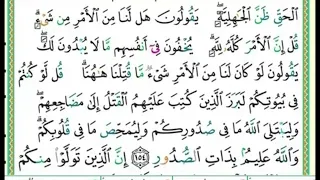 ٱلْحَقِّ ظَنَّ ٱلْجَٰهِلِيَّةِ ۖ يَقُولُونَ هَل لَّنَا مِنَ ٱلْأَمْرِ مِن شَىْءٍ ۗ
قُلْ إِنَّ ٱلْأَمْرَ كُلَّهُۥ لِلَّهِ ۗ يُخْفُونَ فِىٓ أَنفُسِهِم مَّا لَا يُبْدُونَ لَكَ ۖ
يَقُولُونَ لَوْ كَانَ لَنَا مِنَ ٱلْأَمْرِ شَىْءٌ مَّا قُتِلْنَا هَٰهُنَا ۗ قُل لَّوْ كُنتُمْ
فِى بُيُوتِكُمْ لَبَرَزَ ٱلَّذِينَ كُتِبَ عَلَيْهِمُ ٱلْقَتْلُ إِلَىٰ مَضَاجِعِهِمْ ۖ
وَلِيَبْتَلِىَ ٱللَّهُ مَا فِى صُدُورِكُمْ وَلِيُمَحِّصَ مَا فِى قُلُوبِكُمْ ۗ
وَٱللَّهُ عَلِيمٌۢ بِذَاتِ ٱلصُّدُورِ ١٥٤ إِنَّ ٱلَّذِينَ تَوَلَّوْا۟ مِنكُمْ